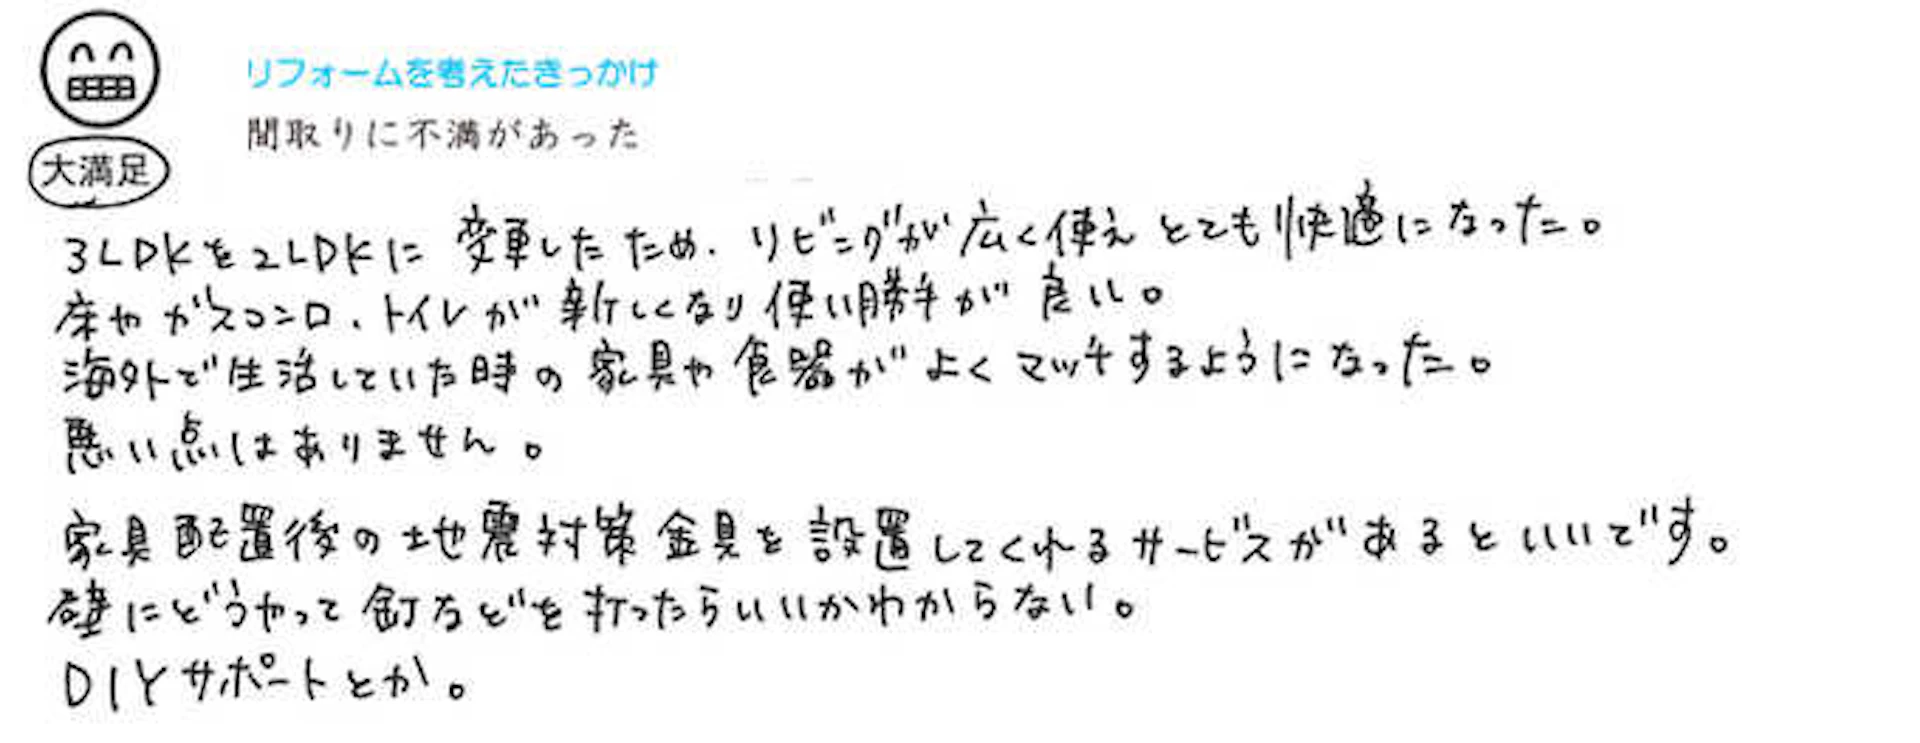 リフォームを考えたきっかけ
間取りに不満があった
大満足
3LDKを2LDKに変更したため、リビングが広く使えとても快適になった。
床やガスコンロ、トイレが新しくなり使い勝手が良い。
海外で生活していた時の家具や食器がよくマッチするようになった。
悪い点はありません。
家具配置後の地震対策金具を設置してくれるサービスがあるといいです。
壁にどうやって釘などを打ったらいいかわからない。
DIYサポートとか。